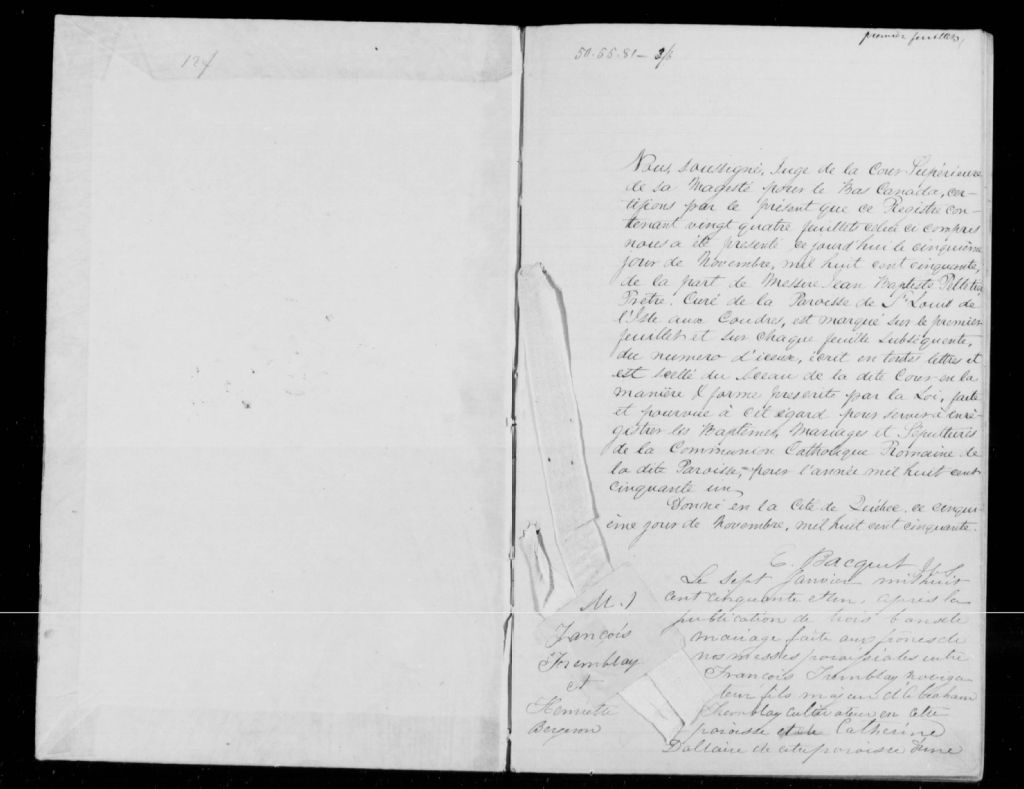 127
premier feuillet
50.55.81 - 3/6
Nous, soussigné, Juge de la Cour Supérieure
de sa Magesté pour le Bas Canada, cer-
tifions par le présent que ce Registre con-
tenant vingt quatre feuillets celui ci compris
nous a été presenté ce jourd'hui le cinquième
jour de Novembre, mil huit cent cinquante,
de la part de Messire Jean Baptiste Pelletier
Prêtre. Curé de la Paroisse de St Louis de
l'Isle aux Coudres, est marqué sur le premier
feuillet et sur chaque feuille subséquente,
du numero d'iceux, écrit en toutes lettres et
est scellé du Sceau de la dite Cour en la
manière & forme prescrite par la Loi, faite
et pourvue à cet égard pour servir à enré-
gistrer les Baptêmes, Mariages et Sépultures
de la Communion Catholique Romaine de
la dite Paroisse, pour l'année mil huit cent
cinquante un
Donné en la Cité de Québec, ce cinqui-
ème jour de Novembre, mil huit cent cinquante.
E. Bacquet
Le sept Janvier mil huit
cent cinquante et un, après la
publication de trois bans de
mariage faite aux prones de
nos messes paroissiales entre
François Tremblay naviga
teur fils majeur d'Abraham
Tremblay cultivateur en cette
paroisse et de Catherine
Dallaire de cette paroisse d'une
M. 1
François
Tremblay
et
Henriette
Bergeron